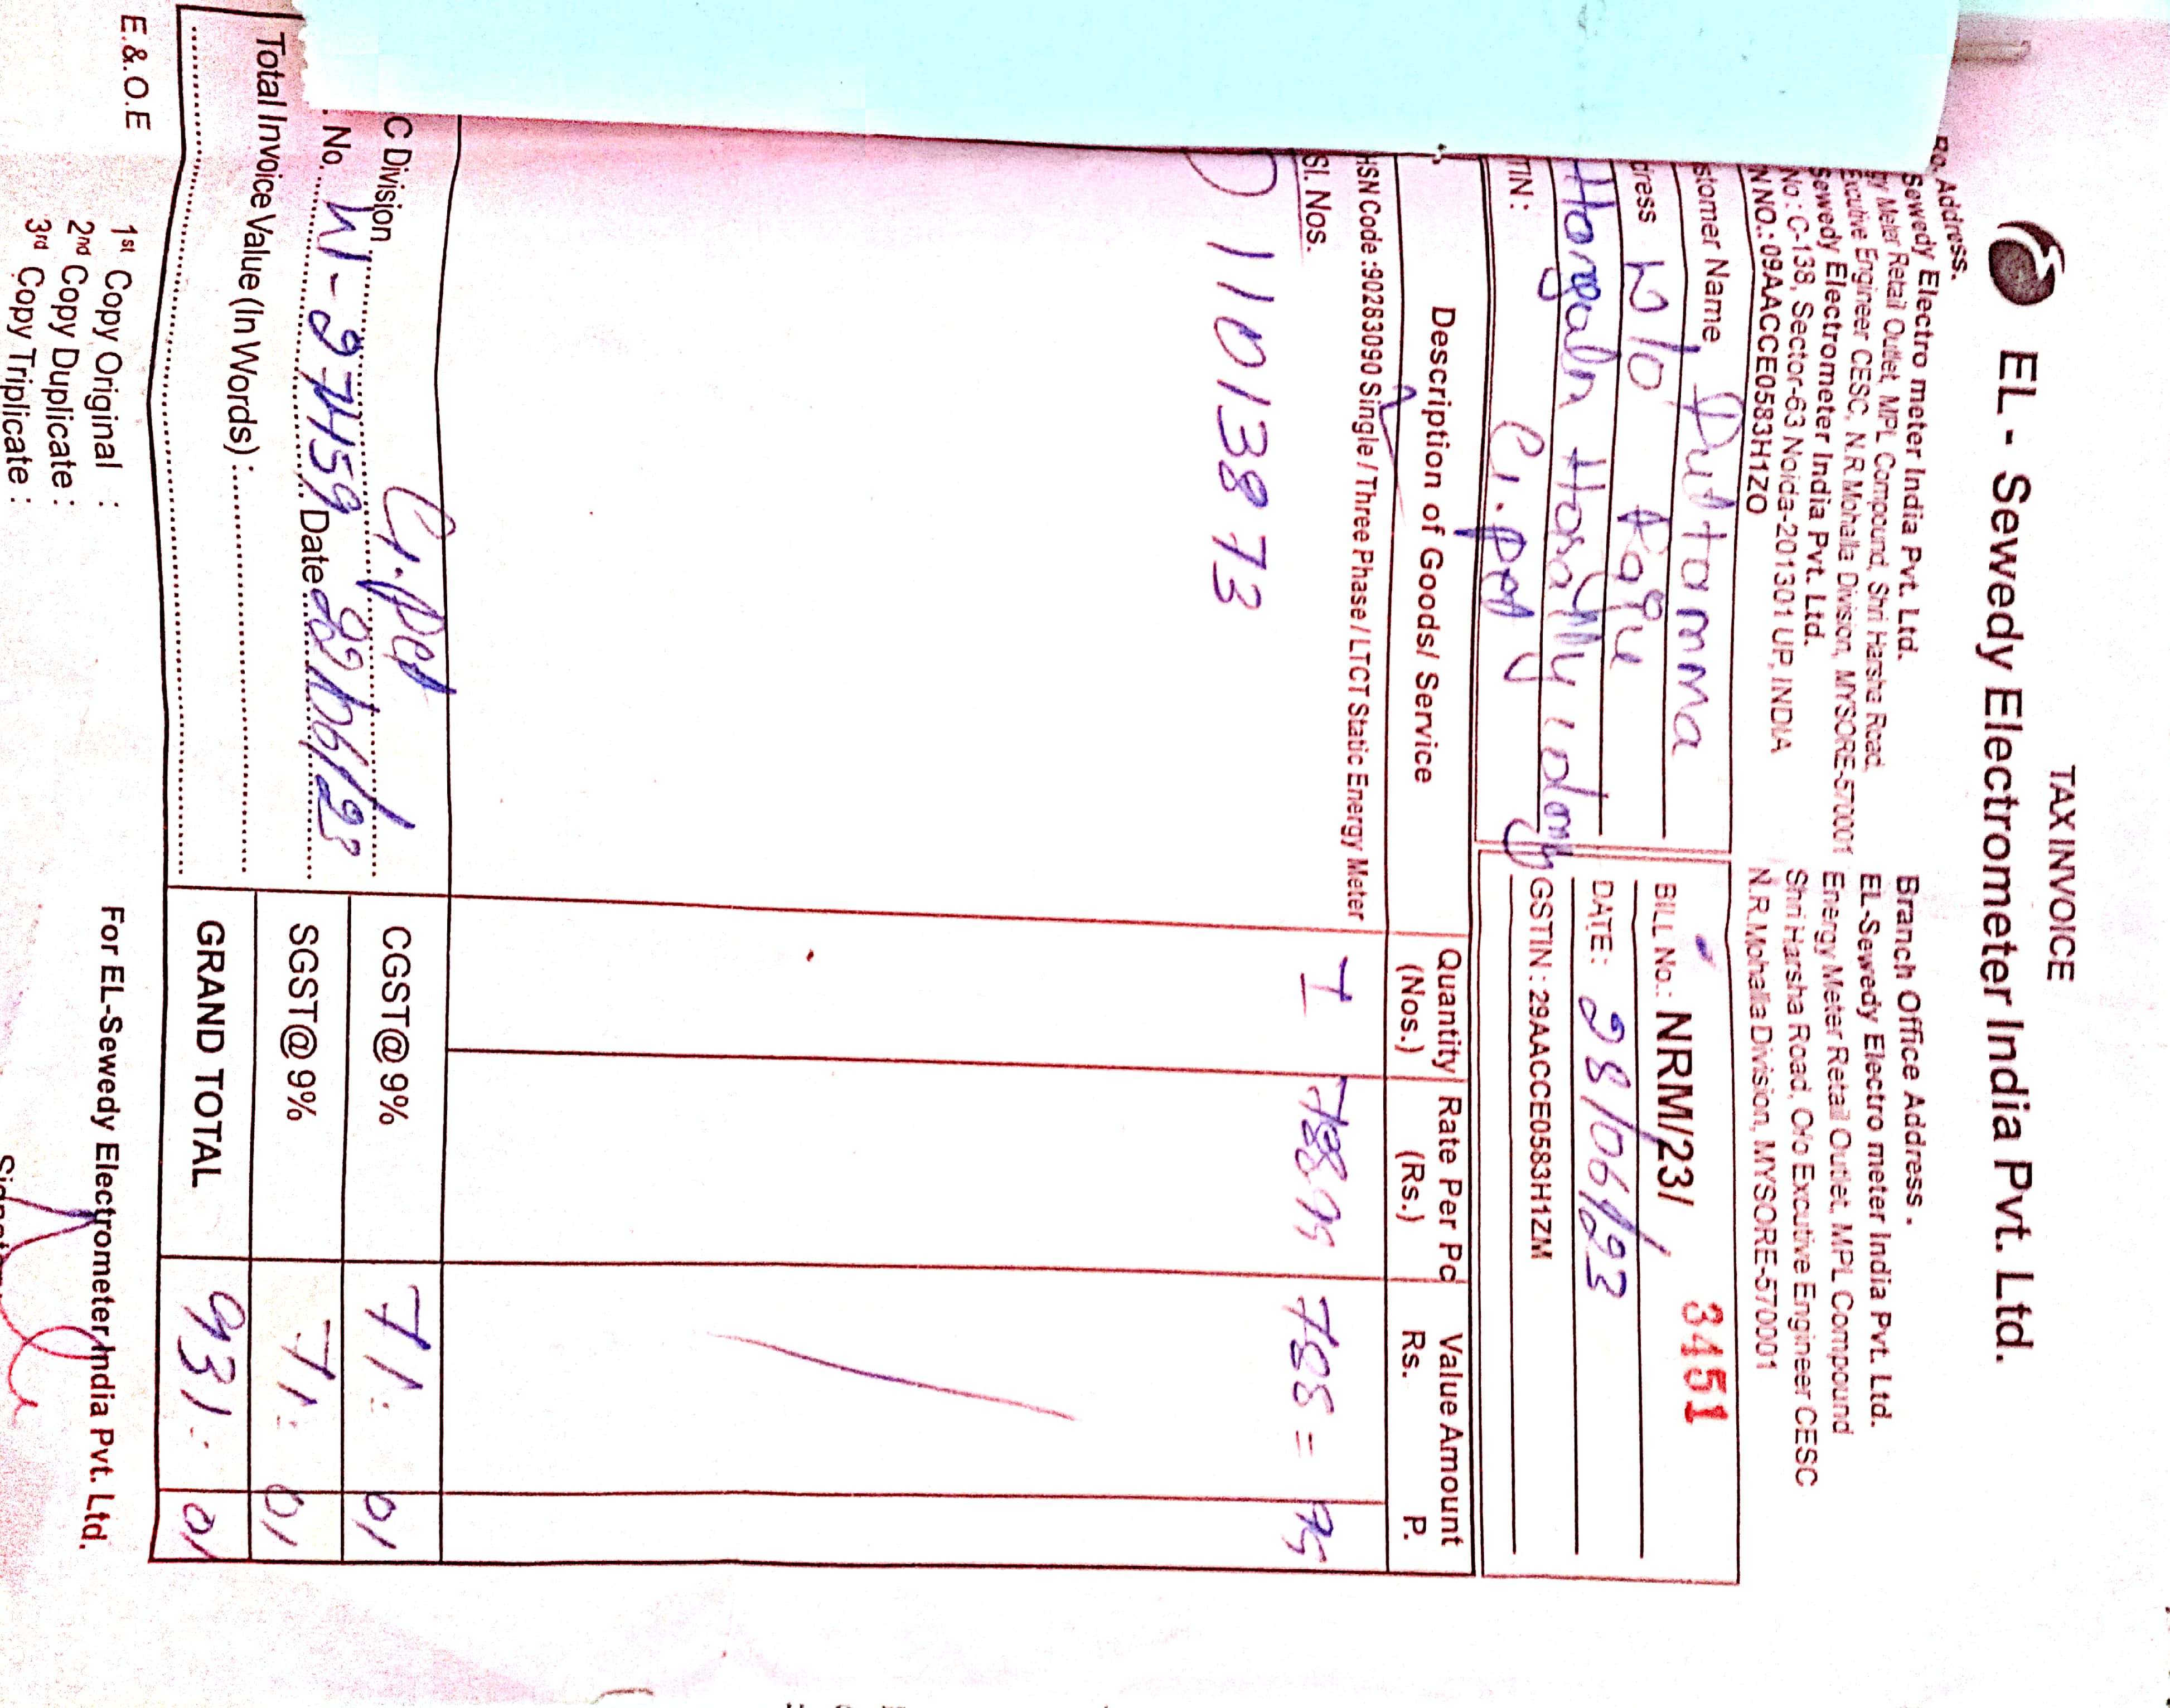 TAX INVOICE
EL - Sewedy Electrometer India Pvt. Ltd.
Address.
Sewedy Electro meter India Pvt. Ltd.
Meter Retail Outlet, MPL Compound, Shri Harsha Road,
Executive Engineer CESC, N.R.Mohalla Division, MYSORE-570001
Sewedy Electrometer India Pvt. Ltd.
No.: C-138, Sector-63 Noida-201301 UP, INDIA
N NO.: 09AACCE0583H1ZO
Branch Office Address .
EL-Sewedy Electro meter India Pvt. Ltd.
Energy Meter Retail Outlet, MPL Compound
Shri Harsha Road, O/o Excutive Engineer CESC
N.R.Mohalla Division, MYSORE-570001
stomer Name Puttamma
dress W/o
TIN :
BILL No.: NRM/23/ 3451
DATE : 28/06/23
GSTIN : 29AACCE0583H1ZM
Description of Goods/ Service Quantity (Nos.) Rate Per Pc (Rs.) Value Amount Rs. P.
HSN Code :90283090 Single / Three Phase / LTCT Static Energy Meter
Sl. Nos. 1 788 95 788 = 95
) 11013873
C Division
. No. Date 22/06/23
Total Invoice Value (In Words) :
CGST@ 9% 71 : 01
SGST@ 9% 71 : 01
GRAND TOTAL 931 : 01
E.&.O.E
For EL-Sewedy Electrometer India Pvt. Ltd.
1st Copy Original :
2nd Copy Duplicate :
3rd Copy Triplicate :